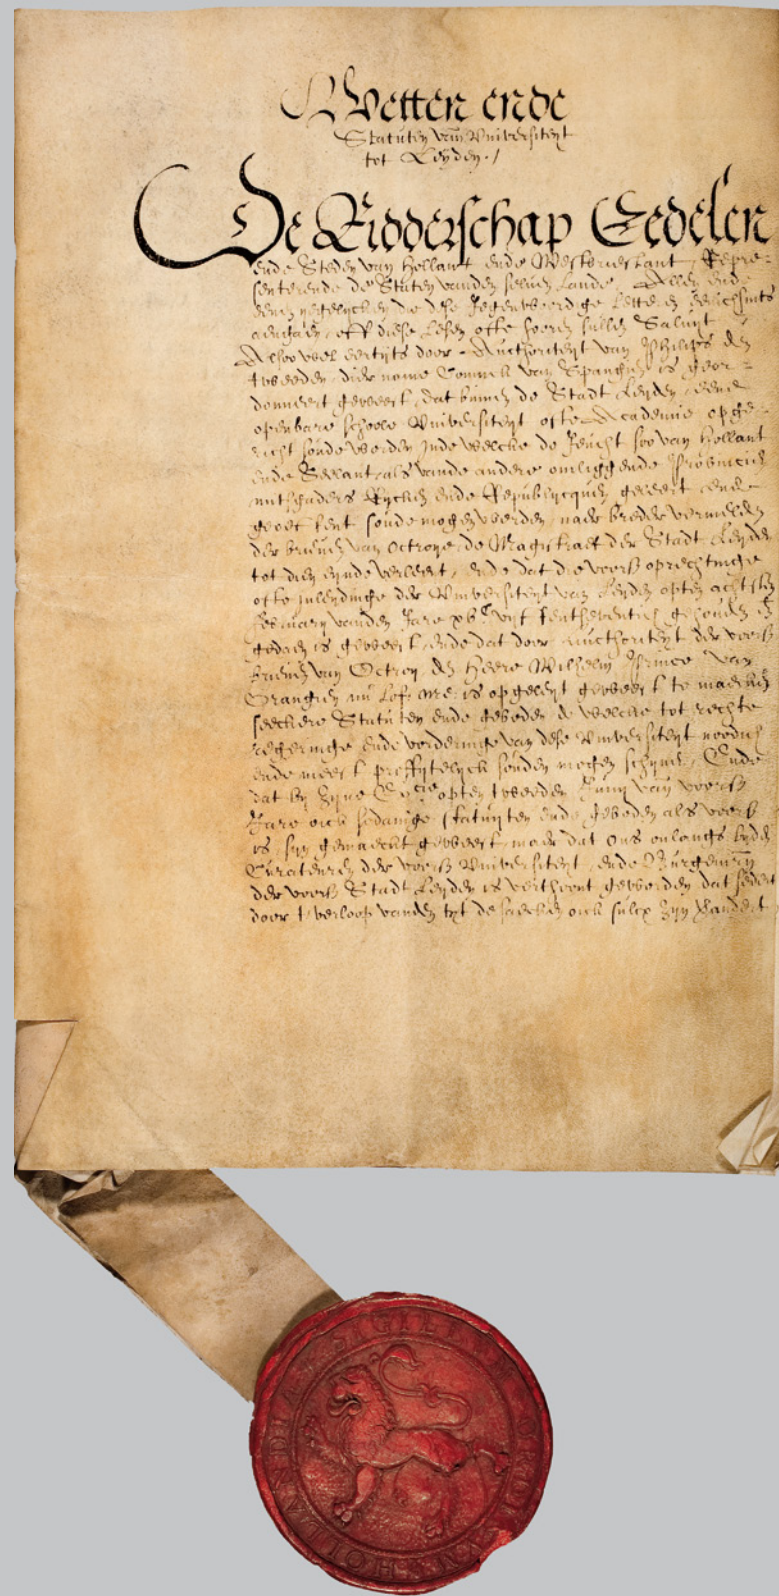 Wetten ende
Statuten van Universiteyt
tot Leyden./
De Ridderschap Eedelen
ende Steden van Hollant ende Westvrieslant, Repre-
senterende de Staten vanden selven Lande. Allen ende
eenen yegelycken die dese Jegenwoordige Letteren
aengaen, off diese Lesen ofte hooren sullen Saluyt
Alsoo wel eertyts door Aucthoriteyt van Philips den
tweeden dier name Conninck van Spangien is geor-
donneert geweest, dat binnen de Stadt Leyden, eene
openbare schoole Universiteyt ofte Academie opge-
richt soude werden, inde welcke de Jeucht soo van Hollant
ende Seelant, als vande andere omliggende Provincien
mitsgaders Rycken ende Republycquen geleert ende
soude mogen werden, naer breder vermelden
der brieven van Octroye, de Magistraet der Stadt Leyden
tot dien eynde verleent, ende dat die voors oprechtinge
ofte inleydinge der Universiteyt van Leyden opten achtsten
february vanden Jare xvc vyff gehouden en
gedaen is geweest, ende dat door aucthoriteyt der voors
brieven van Octroy, den Heere Wilhelm Prince van
Orangien is opgeleyt geweest te maecken
seeckere Statuten ende geboden, de welcke tot rechte
regeringe ende vorderinge van dese Universiteyt noodich
ende meest proffytelyck souden mogen schynen, Ende
dat by Zyne Excie opten tweeden Juny van voors
Jare oick sodanige statuyten ende geboden als voors
is, syn gemaeckt geweest, maer dat ons onlangs byden
Curateuren der voors Universiteyt, ende Burgemrn
der voors Stadt Leyden is verthoont geworden, dat sedert
door t verloop vanden tyt de saecken oick sulcx zyn verandert
SIGILLUM ORDINUM HOLLANDIAE